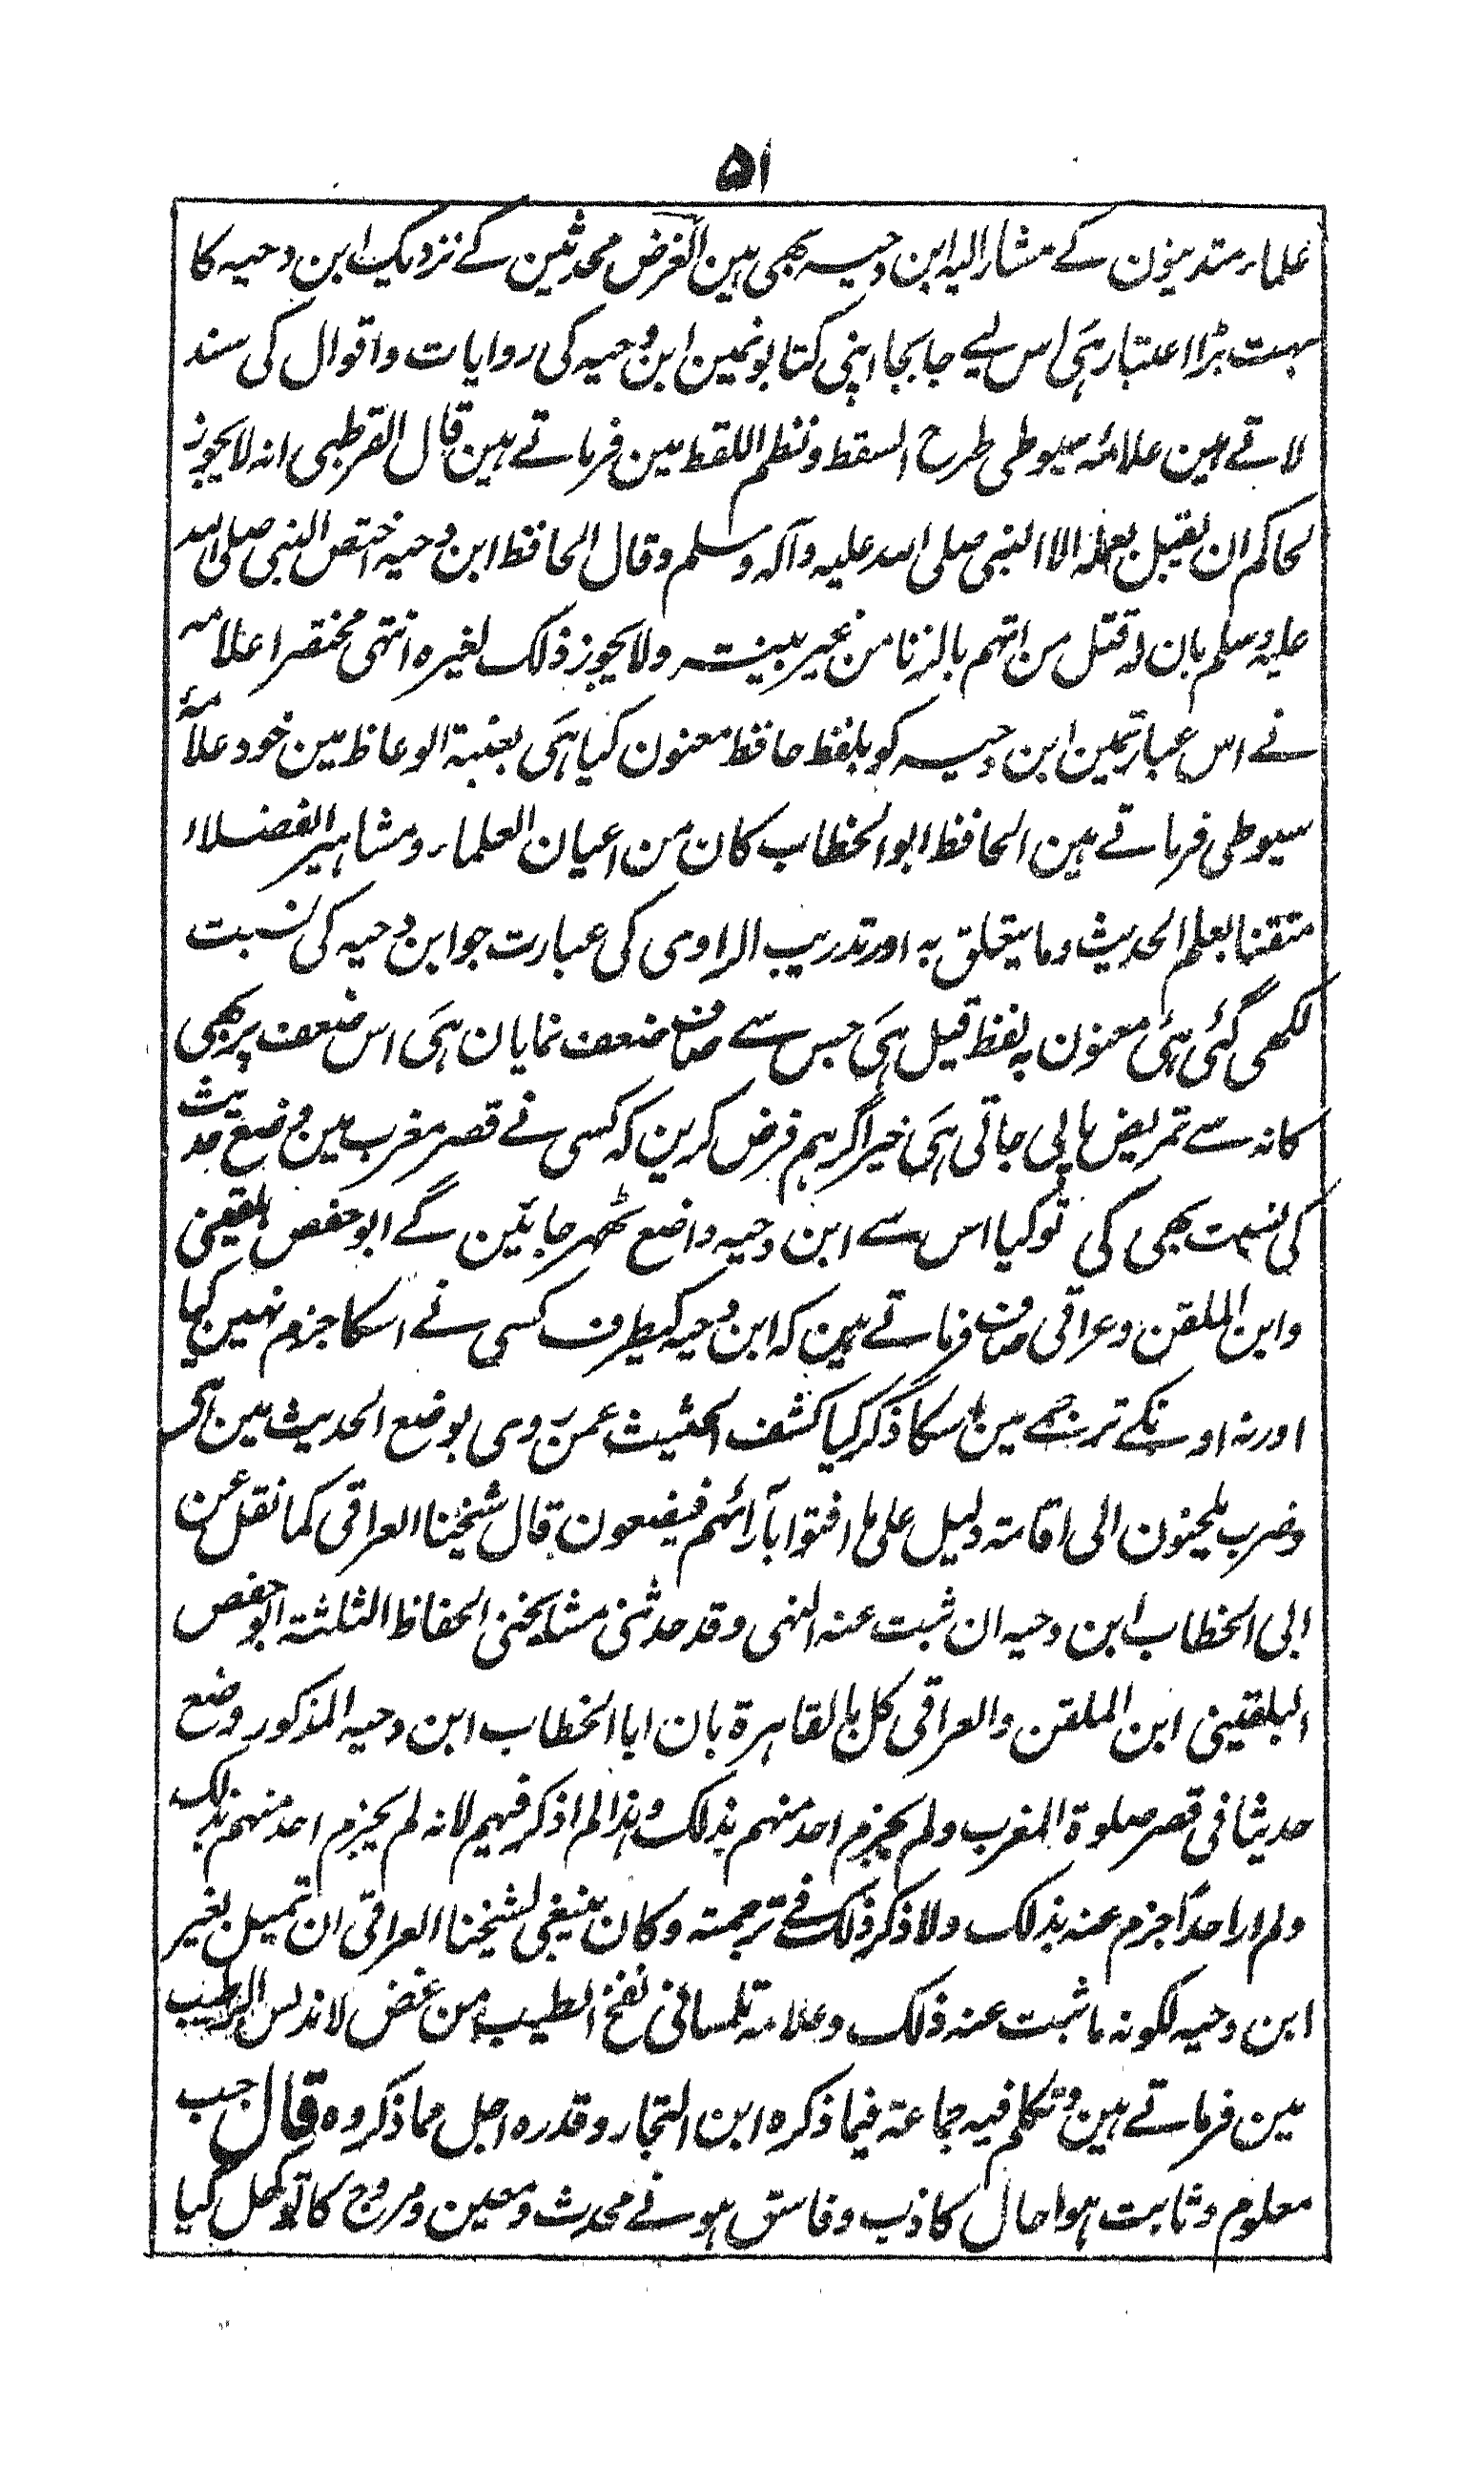 ۵۱
علماء متدینون کے مشار الیہ ابن دحیہ بھی ہین الغرض محدثین کے نزدیک ابن دحیہ کا
بہت بڑا اعتبار ہی اس لیے جابجا اپنی کتابونمین ابن دحیہ کی روایات و اقوال کی سند
لاتے ہین علامہ سیوطی طرح السقط و نظم اللقط مین فرماتے ہین قال القرطبی انہ لا یجوز
لحاکم ان یقبل بعلمہ الا النبی صلی اللہ علیہ وآلہ وسلم وقال الحافظ ابن دحیہ اختص النبی صلی اللہ
علیہ وسلم بان لہ قتل من اتہم بالزنا من غیر بینتہ ولا یجوز ذلک لغیرہ انتہی مختصرا علامہ
نے اس عبارتمین ابن دحیہ کو بلفظ حافظ معنون کیا ہی بغیتہ الوعاظ مین خود علامہ
سیوطی فرماتے ہین الحافظ ابو الخطاب کان من اعیان العلماء ومشاہیر الفضلاء
متقنا بعلم الحدیث وما یتعلق بہ اور تدریب الراوی کی عبارت جو ابن دحیہ کی نسبت
لکھی گئی ہی معنون بہ لفظ قیل ہی جس سے صاف ضعف نمایان ہی اس ضعف پر بھی
کانہ سے تمریض پاپی جاتی ہی خیر اگر ہم فرض کرین کہ کسی نے قصر مغرب مین وضع حدیث
کی نسبت بھی کی تو کیا اس سے ابن دحیہ واضع ٹھہر جائین گے ابو حفص بلقینی
وابن الملقن و عراقی صاف فرماتے ہین کہ ابن دحیہ کیطرف کسی نے اسکا جزم نہین کیا
اور نہ اونکے ترجمے مین اسکا ذکر کیا کشف الحثیث عمن روی بوضع الحدیث مین ہی
وضرب یلجئون الی اقامتہ دلیل علی ما افتوا بآرائہم فیضعون قال شیخنا العراقی کما نقل عن
ابی الخطاب ابن دحیہ ان ثبت عنہ النہی وقد حدثنی مشایخنی الحفاظ الثلثتہ ابو حفص
البلقینی ابن الملقن والعراقی کل بالقاہرۃ بان ابا الخطاب ابن دحیہ المذکور وضع
حدیثا فی قصر صلوۃ المغرب ولم یجزم احد منہم بذلک ولہذا لم اذکر فیہم لانہ لم یجزم احد منہم بذلک
ولم ار احدًا جزم عنہ بذلک ولا ذکر ذلک فے ترجمتہ وکان ینبغی لشیخنا العراقی ان تمیل بغیر
ابن دحیہ لکونہ ما ثبت عنہ ذلک وعلامہ تلمسانی نفح الطیب من غض لاندلس الرطیب
مین فرماتے ہین وتکلم فیہ جماعۃ فیما ذکرہ ابن النجار وقدرہ اجل مما ذکروہ قال جب
معلوم و ثابت ہوا حال کاذب و فاسق ہونے محدث و معین و مروج کا تو کھل گیا